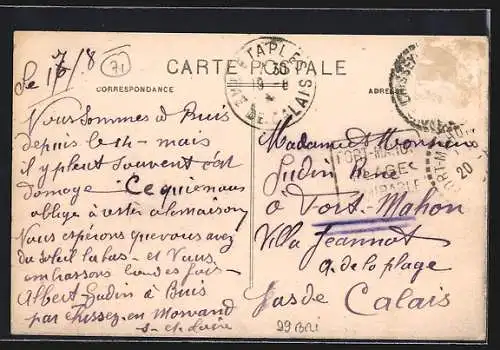 le 17/8
71
CARTE POSTALE
CORRESPONDANCE
ADRESSE
ETAPLES
PAS DE CALAIS
Nous sommes à Buis
depuis le 14 - mais
il y pleut souvent c'est
domage Ce qui nous
oblige à rester a la maison
Nous espérons que vous avez
du soleil labas - et Vous
embrassons tous
Albert Gudin à Buis
par Chissey-en Morvand
S- et Loire
Madame et Monsieur
Gudin René
à Fort-Mahon
Villa Jeannot
a. de la plage
Pas de Calais
FORT-MAHON
PLAGE
29 BRI